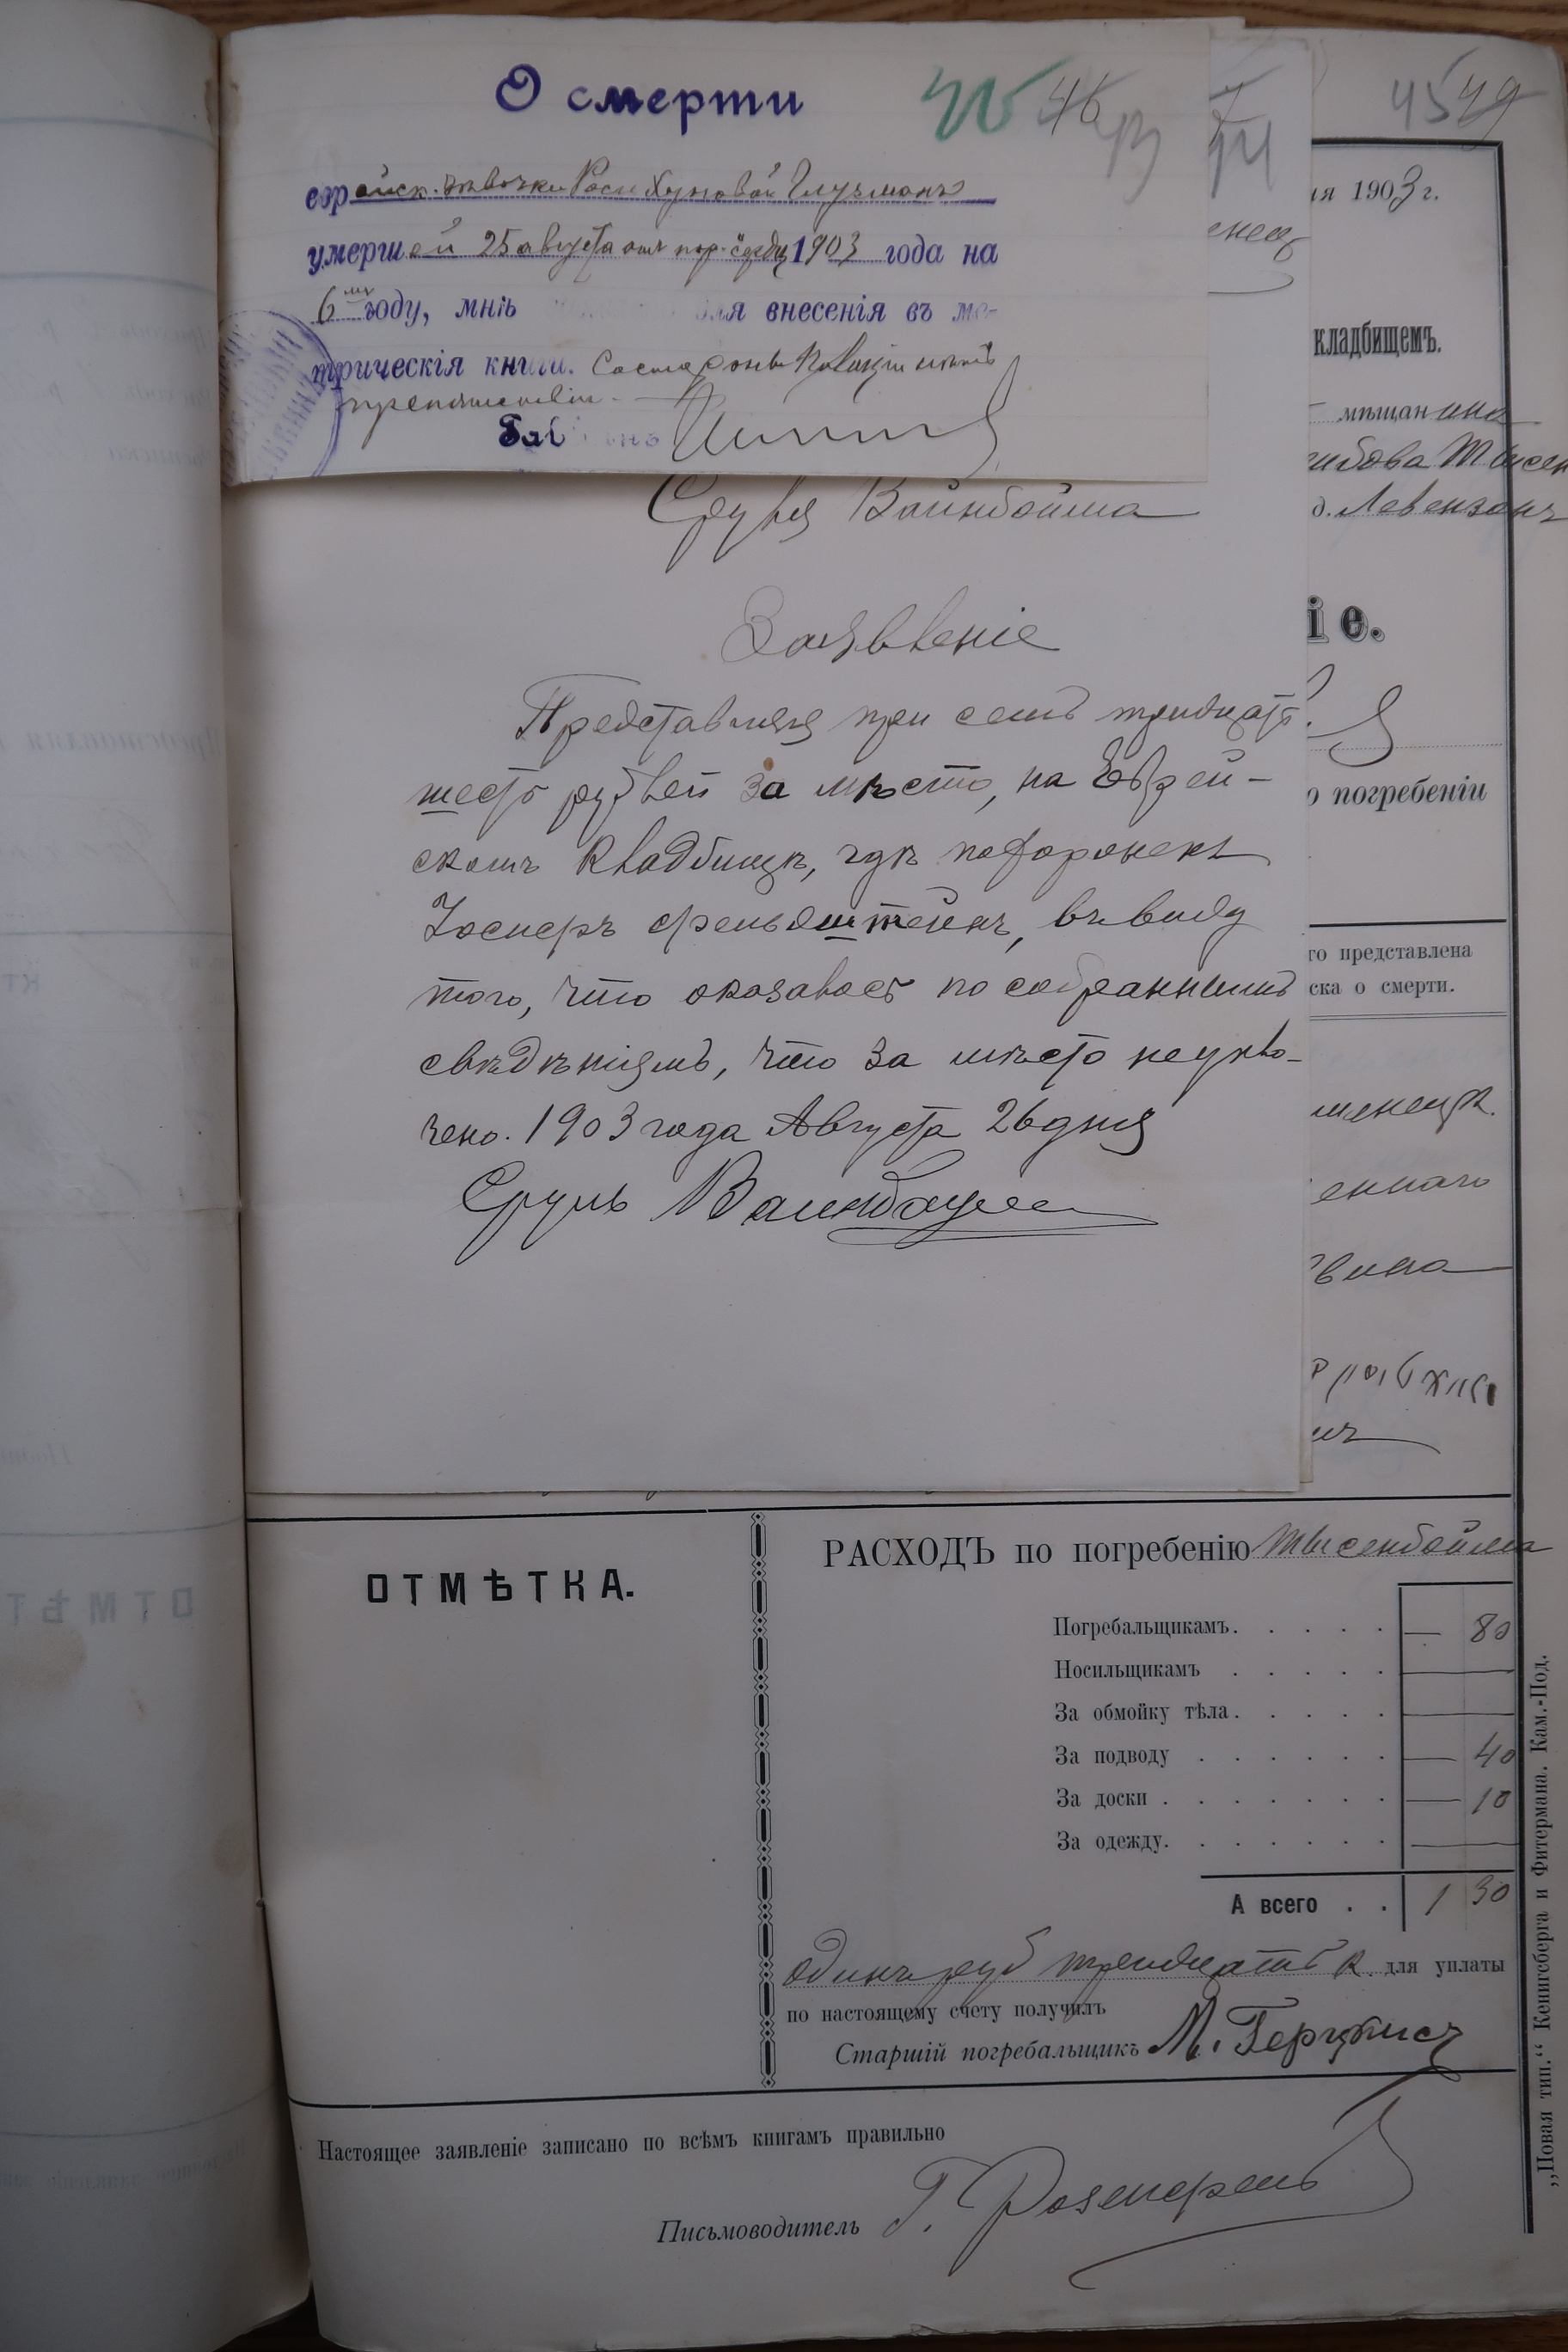 О смерти
45 46
еврейск. девочки Роси Хуновой Глузманъ
умершей 25 августа отъ пор. сердц 1903 года на
6мъ году, мнѣ для внесенія въ ме-
трическія книги. Со стороны полиціи нѣтъ
препятствій.
Сруля Вайнбойма
Заявленіе
Представляя при семъ тридцать
шесть рублей за мѣсто, на Еврей-
скомъ кладбищѣ, гдѣ похороненъ
Іосифъ Френдштейнъ, въ виду
того, что оказалось по собраннымъ
свѣдѣніямъ, что за мѣсто не упло-
чено. 1903 года Августа 26 дня
Сруль Вайнбоумъ
45 49
ія 1903 г.
кладбищемъ.
мѣщанина
д. Левензонъ
іе.
о погребеніи
го представлена
ска о смерти.
еннаго
ОТМѢТКА.
РАСХОДЪ по погребенію Тысенбойма
Погребальщикамъ. — 80
Носильщикамъ —
За обмойку тѣла. —
За подводу — 40
За доски . — 10
За одежду. —
А всего . . 1 30
одинъ руб тридцать к. для уплаты
по настоящему счету получилъ
Старшій погребальщикъ М. Герцписъ
Настоящее заявленіе записано по всѣмъ книгамъ правильно
Письмоводитель Г. Розенфельдъ
„Новая тип.“ Кенигсберга и Фитермана. Кам.-Под.